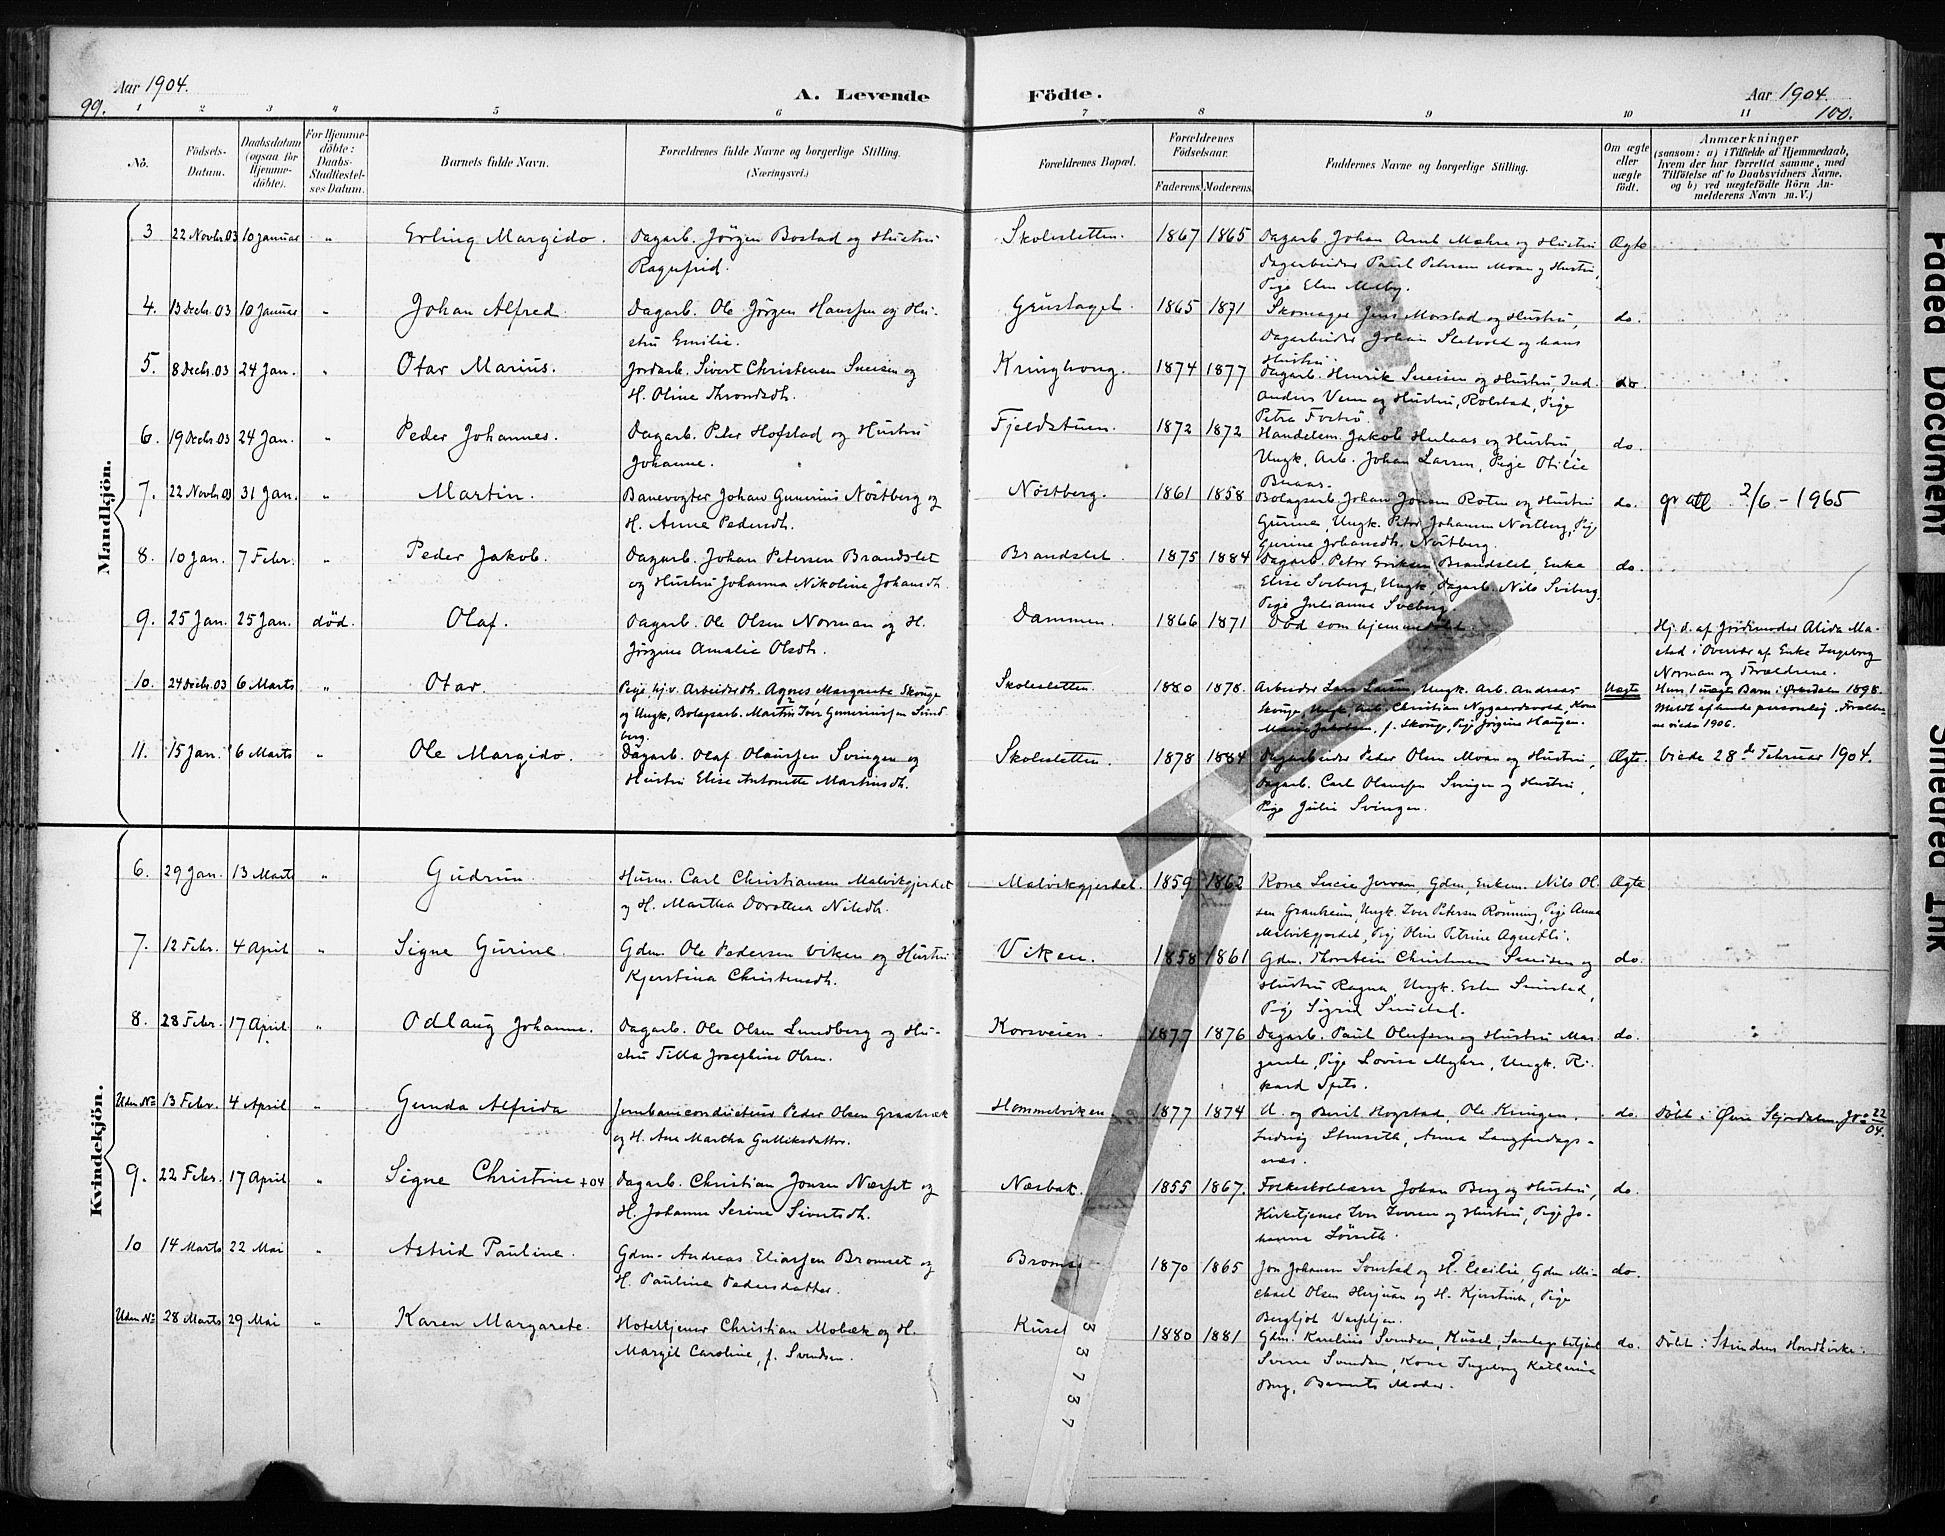 Aar 1904.
99.
A. Levende
Födte.
Aar 1904.
100.
1 2 3 4 5 6 7 8 9 10 11
No.
Födsels-
Datum.
Daabsdatum
(ogsaa for
Hjemme-
döbte).
For Hjemme-
döbte:
Daabs-
Stadfæstel-
ses Datum.
Barnets fulde Navn.
Forældrenes fulde Navne og borgerlige Stilling.
(Næringsvei.)
Forældrenes Bopæl.
Forældrenes
Födselsaar.
Faderens Moderens
Faddernes Navne og borgerlige Stilling.
Om ægte
eller
uægte
födt.
Anmærkninger
(saasom: a) i Tilfælde af Hjemmedaab,
hvem der har forrettet samme, med
Tilföielse af to Daabsvidners Navne.
og b) ved uægtefödte Börn An-
melderens Navn m.V.)
Mandkjön.
3 22 Novbr. 03 10 Januar „ Erling Margido. Dagarb. Jörgen Bostad og Hustru
Ragnfrid.
Skolesletten. 1867 1865 Dagarb. Johan Arnt Mæhre og Hustru
Dagarbeider Paul Petersen Moan og Hustru,
Pige Elen Melby.
Ægte
4. 13 Decbr. 03 10 Januar „ Johan Alfred. Dagarb. Ole Jörgen Hanssen og Hu-
stru Emilie.
Grustaget. 1865 1871 Skomager Jens Morstad og Hustru,
Dagarbeider Johan Sletvold og hans
Hustru.
do.
5. 8 Decbr. 03 24 Jan. „ Otar Marius. Jordarb. Sivert Christensen Sneisen og
H. Oline Throndsdh.
Kringhong. 1874 1877 Dagarb. Henrik Sneisen og Hustru, Ind.
Anders Venn og Hustru, Rolstad, Pige
Petra Foströ.
do
6. 19 Decbr. 03 24 Jan. „ Peder Johannes. Dagarb. Peter Hofstad og Hustru
Johanne.
Fjeldstuen. 1872 1872 Handelsm. Jakob Herlaas og Hustru,
Ungk. Arb. Johan Larsen, Pige Otilie
Buaas.
do.
7. 22 Novbr. 03 31 Jan. „ Martin. Banevogter Johan Gunerius Nöstberg og
H. Anne Pedersdh.
Nöstberg. 1861 1858 Bolagsarb. Johan Jonsen Roten og Hustru
Gurine, Ungk. Peter Johansen Nöstberg, Pige
Gurine Johansdh. Nöstberg.
do. gr att 2/6 - 1965
8. 10 Jan. 7 Febr. „ Peder Jakob. Dagarb. Johan Petersen Brandslet
og Hustru Johanna Nikoline Johansdh.
Brandslet. 1875 1884 Dagarb. Peter Eriksen Brandslet, Enke
Elise Sveberg, Ungk. Dagarb. Nils Sveberg,
Pige Julianna Sveberg.
do.
9. 25 Jan. 25 Jan. död. Olaf. Dagarb. Ole Olsen Norman og H.
Jörgine Amalie Olsdh.
Dammen. 1866 1871 Död som hjemmedöbt.
Hj. d. af Jordemoder Alida Ma-
stad i Overvær af Enke Ingeborg
Norman og Forældrene.
10. 24 Decbr. 03 6 Marts „ Otar. Pige, hj. v. Arbeiderdh. Agnes Margareta Skouge
og Ungk. Bolagsarb. Martin Iver Gunerinssen Sund-
berg.
Skolesletten. 1880 1878. Arbeider Lars Larsen, Ungk. Arb. Andreas
Skouge, Ungk. Arb. Christian Nygaardsvold, Kone
Marie Jakobsen, f. Skouge, Pige Jörgine Haugen.
Uægte Hun 1 uægte Barn i Örkedalen 1898.
Meldt af hende personlig. Forældre-
ne viede 1906.
11. 15 Jan. 6 Marts „ Ole Margido. Dagarb. Olaf Olaussen Svingen og
Hustru Elise Antonette Martinsdh.
Skolesletten. 1878 1884 Dagarbeider Peder Olsen Moan og Hustru,
Dagarb. Carl Olaussen Svingen og Hustru,
Pige Julie Svingen.
Ægte. Viede 28de Februar 1904.
Kvindekjön.
6. 29 Jan. 13 Marts „ Gudrun. Husm. Carl Christiansen Malvikgjerdet
og H. Martha Dorothea Nilsdh.
Malvikgjerdet. 1859 1862 Kone Lucie Jervan, Gdm. Enkem. Nils Ol-
sen Granheim, Ungk. Iver Petersen Rönning, Pige Anna
Malvikgjerdet, Pige Oline Petrine
Ægte
7. 12 Febr. 4 April „ Signe Gurine. Gdm. Ole Pedersen Viken og Hustru
Kjerstina Christensdh.
Viken. 1858 1861 Gdm. Thorstein Christensen Sneisen og
Hustru Ragna, Ungk. Esten Smistad,
Pige Sigrid Smistad.
do.
8. 28 Febr. 17 April „ Odlaug Johanne. Dagarb. Ole Olsen Lundberg og Hu-
stru Tilla Josephine Olsen.
Korsveien. 1877 1876 Dagarb. Paul Olufsen og Hustru Mar-
garete, Pige Lovise Myhre, Ungk. Ri-
kard Spets.
do.
Uden No 13 Febr. 4 April „ Gunda Alfrida Jernbaneconducteur Peder Olsen Graabræk
og H. Ane Martha Gulliksdatter.
Hommelviken 1877 1874 A. og Berit Hogstad, Ole Kringen,
Ludvig Stenseth, Anna Langfredags-
næs.
do. Döbt i Øvre Stjørdalen, Jr. 22/04.
9. 22 Febr. 17 April „ Signe Christine +04 Dagarb. Christian Jonsen Næsset og
H. Johanne Serine Sivertsdh.
Næsbak. 1855 1867. Folkeskolelærer Johan Berg og Hustru,
Kirketjener Iver Iversen og Hustru, Pige Jo-
hanna Lörseth.
do.
10 14 Marts 22 Mai „ Astrid Pauline. Gdm. Andreas Eliassen Bromset og
H. Pauline Pedersdatter.
Bromse 1870 1865 Jon Johansen Sonstad og H. Cecilie, Gdm. Mi-
chael Olsen Herjuan og H. Kjerstine, Pige
Bergljot
do.
Uden No 28 Marts 29 Mai „ Karen Margarete. Hoteltjener Christian Mobæk og H.
Margit Caroline, f. Svendsen.
Kusel 1880 1881 Gdm. Karelius Svendsen, Kusel,
Sverre Svendsen, Kone Ingeborg Katharina
Berg, Barnets Moder.
do. Döbt i Strindens Hovedkirke.
33737
Faded Document
Smeared Ink